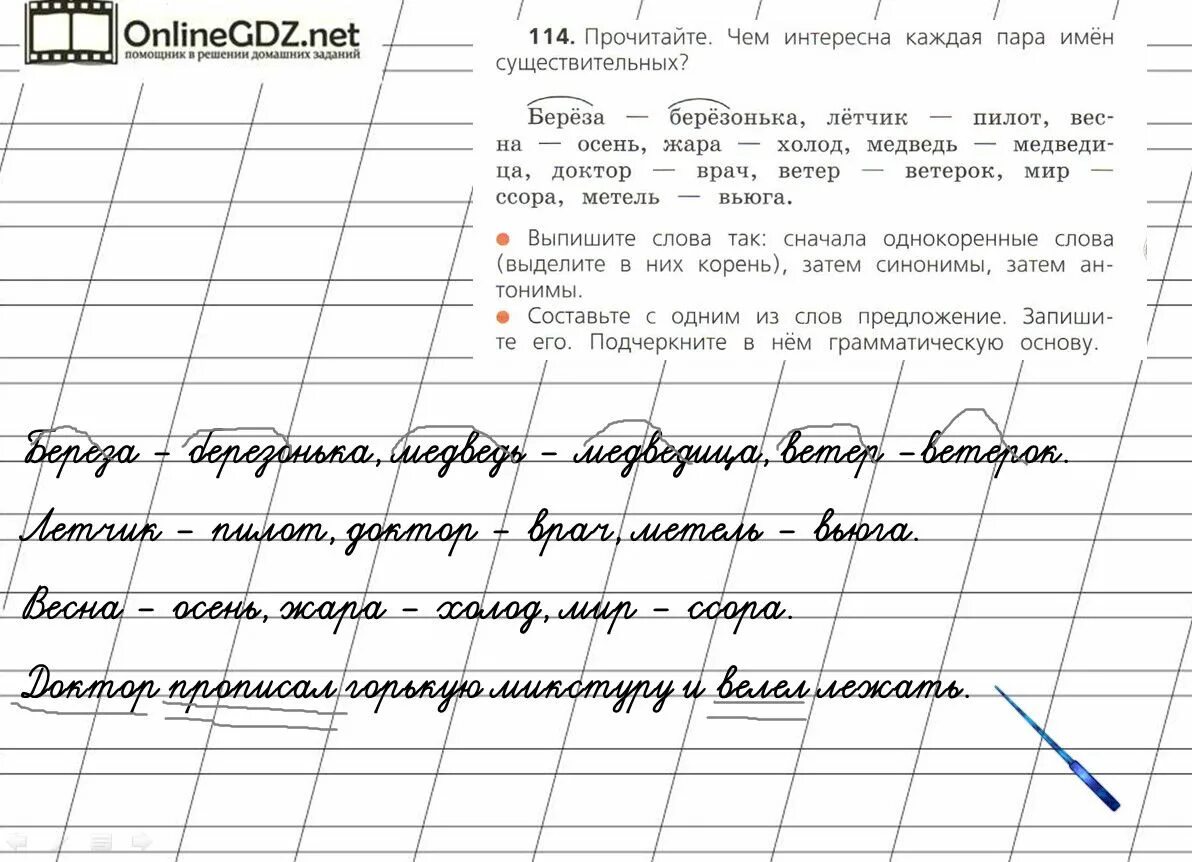 OnlineGDZ.net
помощник в решении домашних заданий
114. Прочитайте. Чем интересна каждая пара имён
существительных?
Берёза — берёзонька, лётчик — пилот, вес-
на — осень, жара — холод, медведь — медведи-
ца, доктор — врач, ветер — ветерок, мир —
ссора, метель — вьюга.
Выпишите слова так: сначала однокоренные слова
(выделите в них корень), затем синонимы, затем ан-
тонимы.
Составьте с одним из слов предложение. Запиши-
те его. Подчеркните в нём грамматическую основу.
Береза – березонька, медведь – медведица, ветер – ветерок.
Летчик – пилот, доктор – врач, метель – вьюга.
Весна – осень, жара – холод, мир – ссора.
Доктор прописал горькую микстуру и велел лежать.